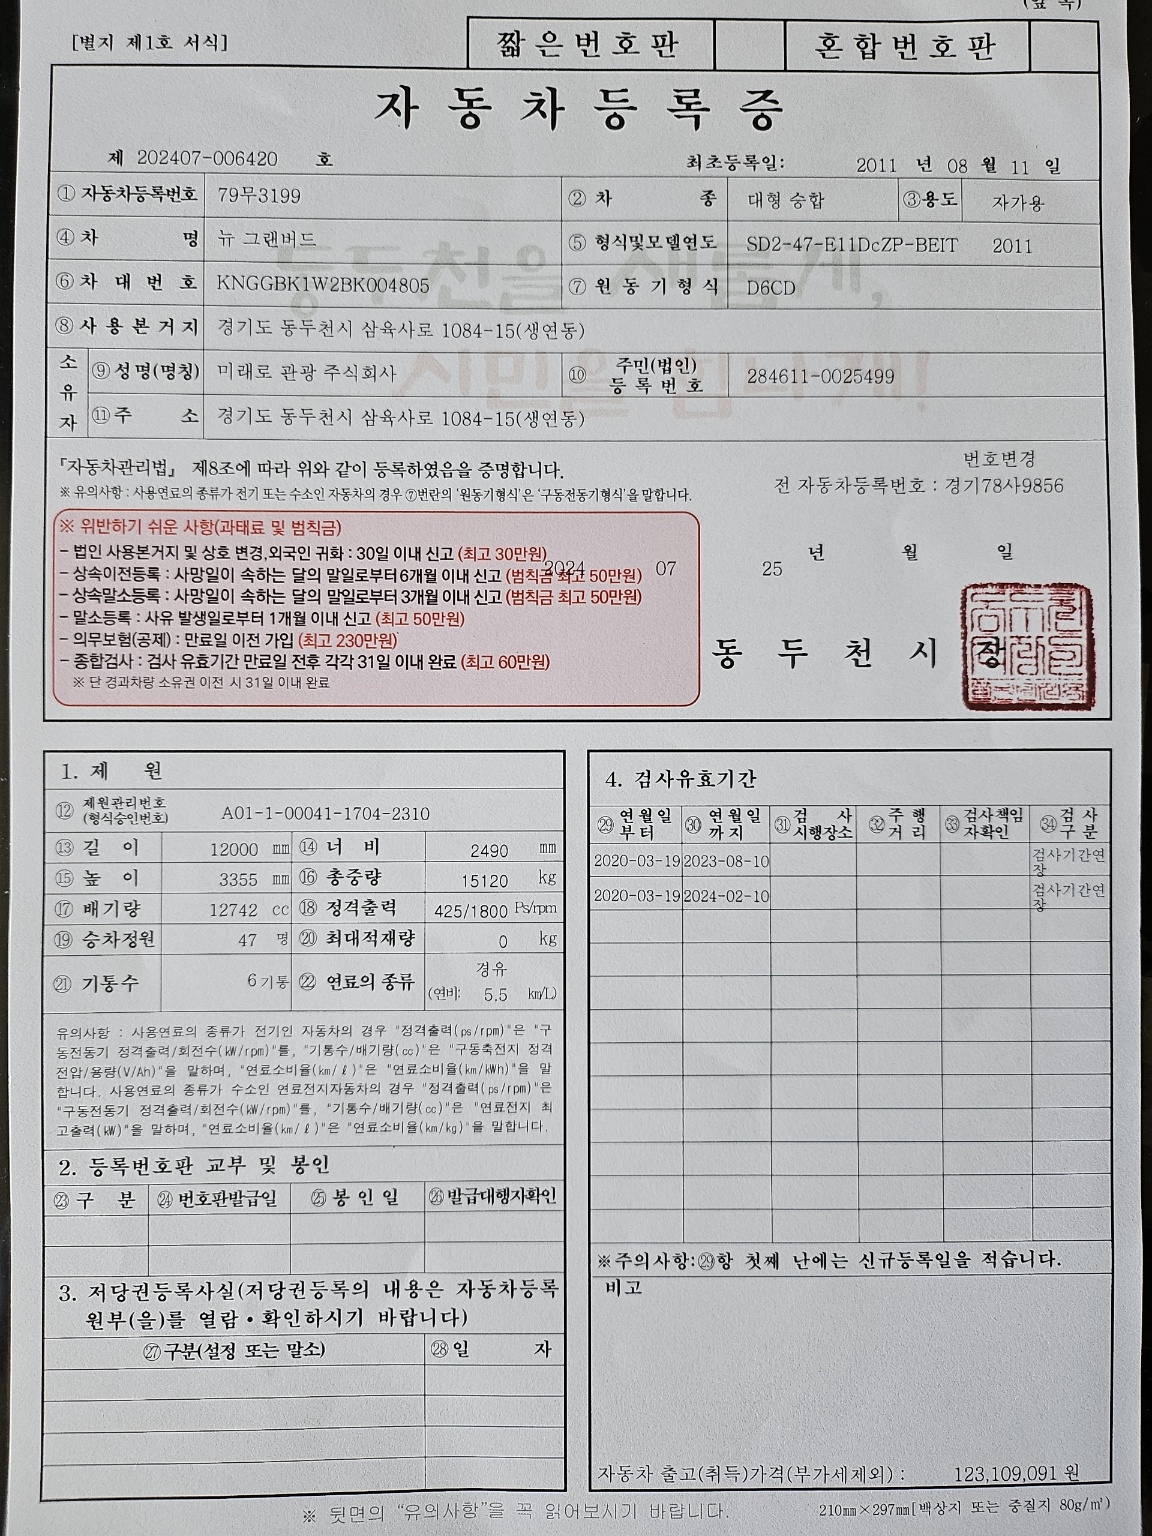 [별지 제1호 서식]
짧은번호판 혼합번호판
자동차등록증
제 202407-006420 호 최초등록일: 2011 년 08 월 11 일
① 자동차등록번호 79무3199 ② 차 종 대형 승합 ③용도 자가용
④ 차 명 뉴 그랜버드 ⑤ 형식및모델연도 SD2-47-E11DcZP-BEIT 2011
⑥ 차 대 번 호 KNGGBK1W2BK004805 ⑦ 원 동 기 형 식 D6CD
⑧ 사 용 본 거 지 경기도 동두천시 삼육사로 1084-15(생연동)
소유자 ⑨성명(명칭) 미래로 관광 주식회사 ⑩ 주민(법인)등록번호 284611-0025499
⑪주 소 경기도 동두천시 삼육사로 1084-15(생연동)
동두천을 새롭게,
시민을 힘나게!
『자동차관리법』 제8조에 따라 위와 같이 등록하였음을 증명합니다.
번호변경
※ 유의사항 : 사용연료의 종류가 전기 또는 수소인 자동차의 경우 ⑦번란의 '원동기형식'은 '구동전동기형식'을 말합니다.
전 자동차등록번호 : 경기78사9856
※ 위반하기 쉬운 사항(과태료 및 범칙금)
- 법인 사용본거지 및 상호 변경,외국인 귀화 : 30일 이내 신고 (최고 30만원)
- 상속이전등록 : 사망일이 속하는 달의 말일로부터 6개월 이내 신고 (범칙금 최고 50만원)
- 상속말소등록 : 사망일이 속하는 달의 말일로부터 3개월 이내 신고 (범칙금 최고 50만원)
- 말소등록 : 사유 발생일로부터 1개월 이내 신고 (최고 50만원)
- 의무보험(공제) : 만료일 이전 가입 (최고 230만원)
- 종합검사 : 검사 유효기간 만료일 전후 각각 31일 이내 완료 (최고 60만원)
※ 단 경과차량 소유권 이전 시 31일 이내 완료
년 월 일
2024 07 25
동 두 천 시 장
1. 제 원
⑫ 제원관리번호
(형식승인번호) A01-1-00041-1704-2310
⑬ 길 이 12000 mm ⑭ 너 비 2490 mm
⑮ 높 이 3355 mm ⑯ 총중량 15120 kg
⑰ 배기량 12742 cc ⑱ 정격출력 425/1800 Ps/rpm
⑲ 승차정원 47 명 ⑳ 최대적재량 0 kg
㉑ 기통수 6 기통 ㉒ 연료의 종류 경유
(연비: 5.5 km/L)
유의사항 : 사용연료의 종류가 전기인 자동차의 경우 "정격출력(ps/rpm)"은 "구
동전동기 정격출력/회전수(kW/rpm)"를, "기통수/배기량(cc)"은 "구동축전지 정격
전압/용량(V/Ah)"을 말하며, "연료소비율(km/ℓ)"은 "연료소비율(km/kWh)"을 말
합니다. 사용연료의 종류가 수소인 연료전지자동차의 경우 "정격출력(ps/rpm)"은
"구동전동기 정격출력/회전수(kW/rpm)"를, "기통수/배기량(cc)"은 "연료전지 최
고출력(kW)"을 말하며, "연료소비율(km/ℓ)"은 "연료소비율(km/kg)"을 말합니다.
2. 등록번호판 교부 및 봉인
㉓ 구 분 ㉔ 번호판발급일 ㉕ 봉 인 일 ㉖ 발급대행자확인
3. 저당권등록사실(저당권등록의 내용은 자동차등록
원부(을)를 열람·확인하시기 바랍니다)
㉗ 구분(설정 또는 말소) ㉘ 일 자
4. 검사유효기간
㉙ 연월일부터 ㉚ 연월일까지 ㉛ 검 사 시행장소 ㉜ 주 행 거 리 ㉝ 검사책임자확인 ㉞ 검 사 구 분
2020-03-19 2023-08-10 검사기간연장
2020-03-19 2024-02-10 검사기간연장
※주의사항:㉙항 첫째 난에는 신규등록일을 적습니다.
비고
자동차 출고(취득)가격(부가세제외) : 123,109,091 원
※ 뒷면의 "유의사항"을 꼭 읽어보시기 바랍니다.
210㎜×297㎜[백상지 또는 중질지 80g/㎡)